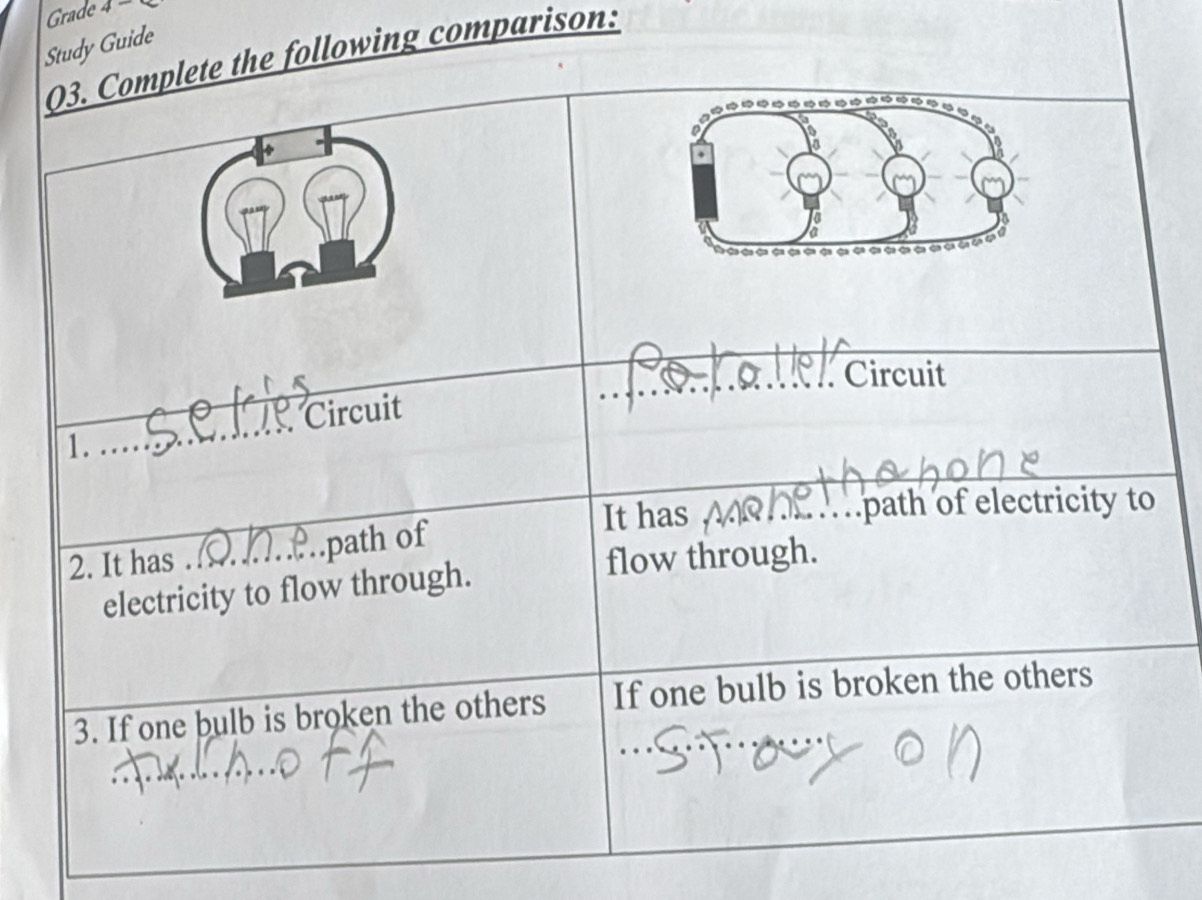 Grade 4 –
Study Guide
Q3. Complete the following comparison:
1. series Circuit
parallel Circuit
2. It has one path of
electricity to flow through.
It has morethanone path of electricity to
flow through.
3. If one bulb is broken the others
turn off
If one bulb is broken the others
stay on